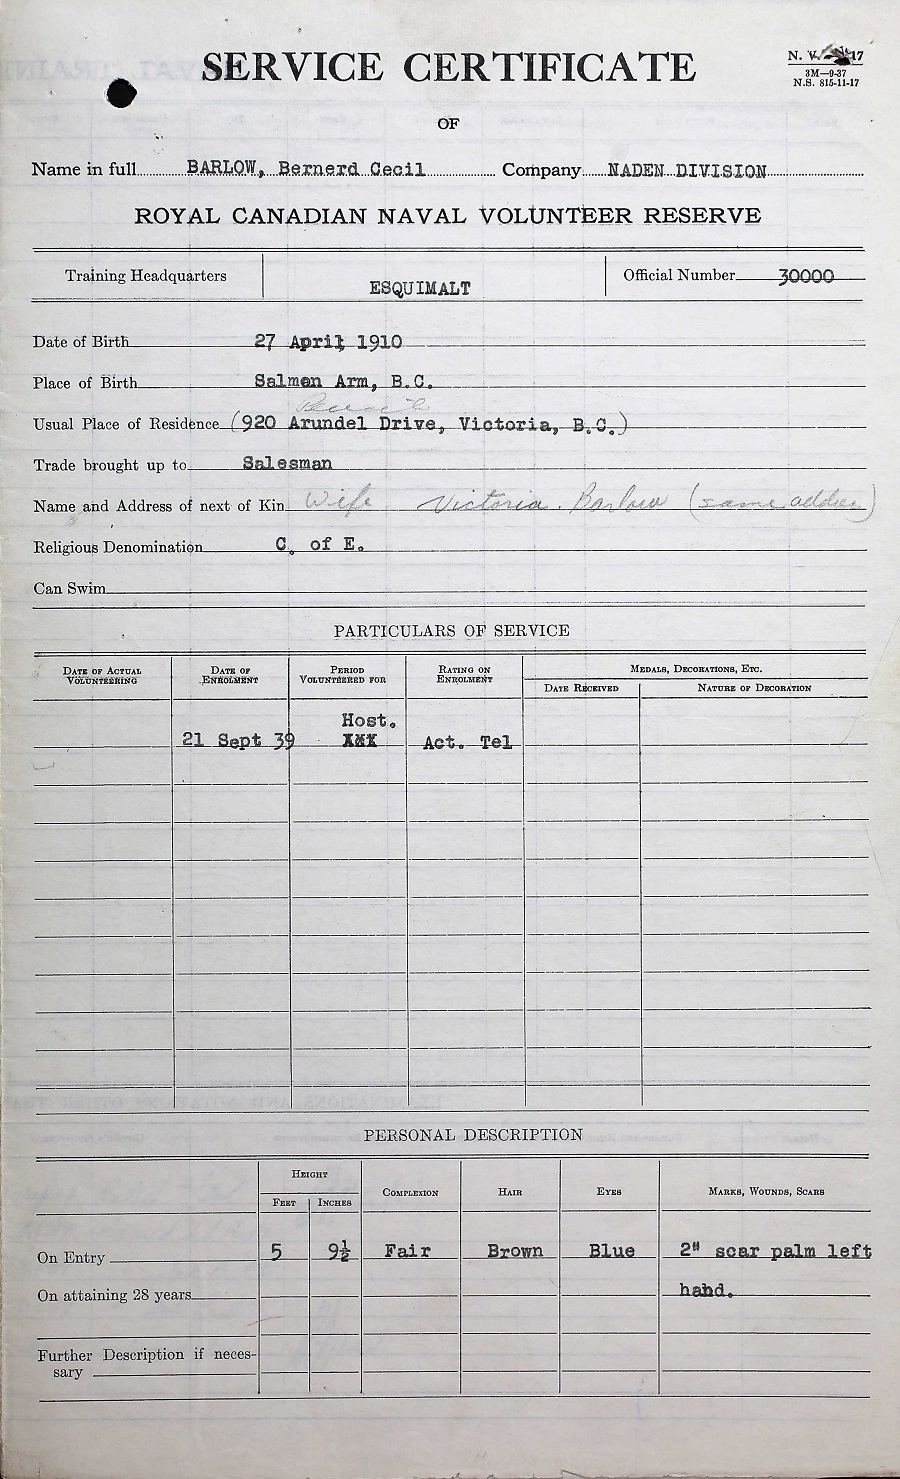 SERVICE CERTIFICATE
N. V. 17
3M—9-37
N.S. 815-11-17
OF
Name in full BARLOW, Bernerd Cecil Company NADEN DIVISION
ROYAL CANADIAN NAVAL VOLUNTEER RESERVE
Training Headquarters ESQUIMALT Official Number 30000
Date of Birth 27 April 1910
Place of Birth Salmon Arm, B.C.
Usual Place of Residence (920 Arundel Drive, Victoria, B.C.)
Trade brought up to Salesman
Name and Address of next of Kin Wife Victoria Barlow (same address)
Religious Denomination C. of E.
Can Swim
PARTICULARS OF SERVICE
DATE OF ACTUAL VOLUNTEERING DATE OF ENROLMENT PERIOD VOLUNTEERED FOR RATING ON ENROLMENT MEDALS, DECORATIONS, ETC.
DATE RECEIVED NATURE OF DECORATION
Host.
21 Sept 39 Act. Tel
PERSONAL DESCRIPTION
HEIGHT
FEET INCHES COMPLEXION HAIR EYES MARKS, WOUNDS, SCARS
On Entry 5 9½ Fair Brown Blue 2" scar palm left
On attaining 28 years hand.
Further Description if neces-
sary